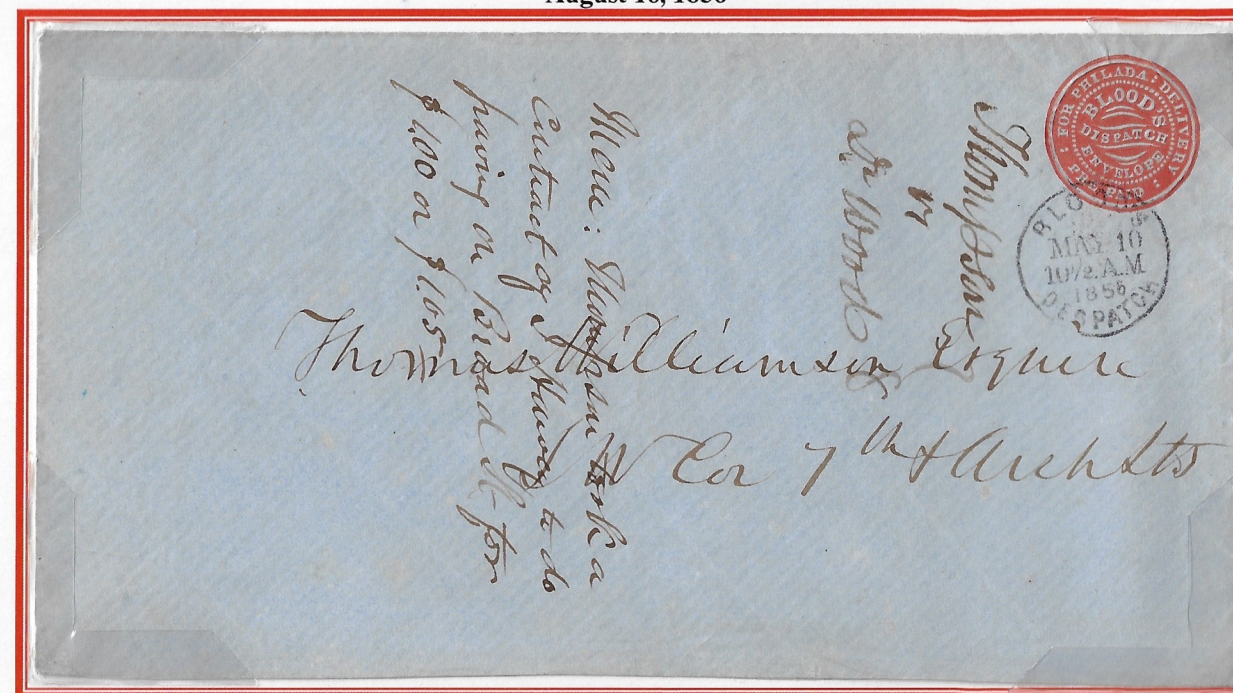 August 16, 1856
: FOR PHILADA: DELIVERY :
BLOOD'S
DISPATCH
ENVELOPE
PREPAID
BLOOD'S
MAY 10
10½ A.M
1856
DESPATCH
Thomas Williamson Esquire
N W Cor 7th & Arch Sts
Thompson
vs
Wood
Mem: Thompson took a
Contract of to do
paving on Broad St for
$1.00 or $1.05